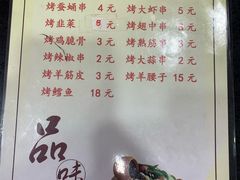 烤蚕蛹串 4 元 烤大虾串 5 元
烤韭菜 8 元 烤翅中串 5 元
烤鸡脆骨 3 元 烤熟筋串 3 元
烤辣椒串 2 元 烤大蒜串 2 元
烤羊筋皮 3 元 烤羊腰子 15 元
烤鳕鱼 18 元
品
味